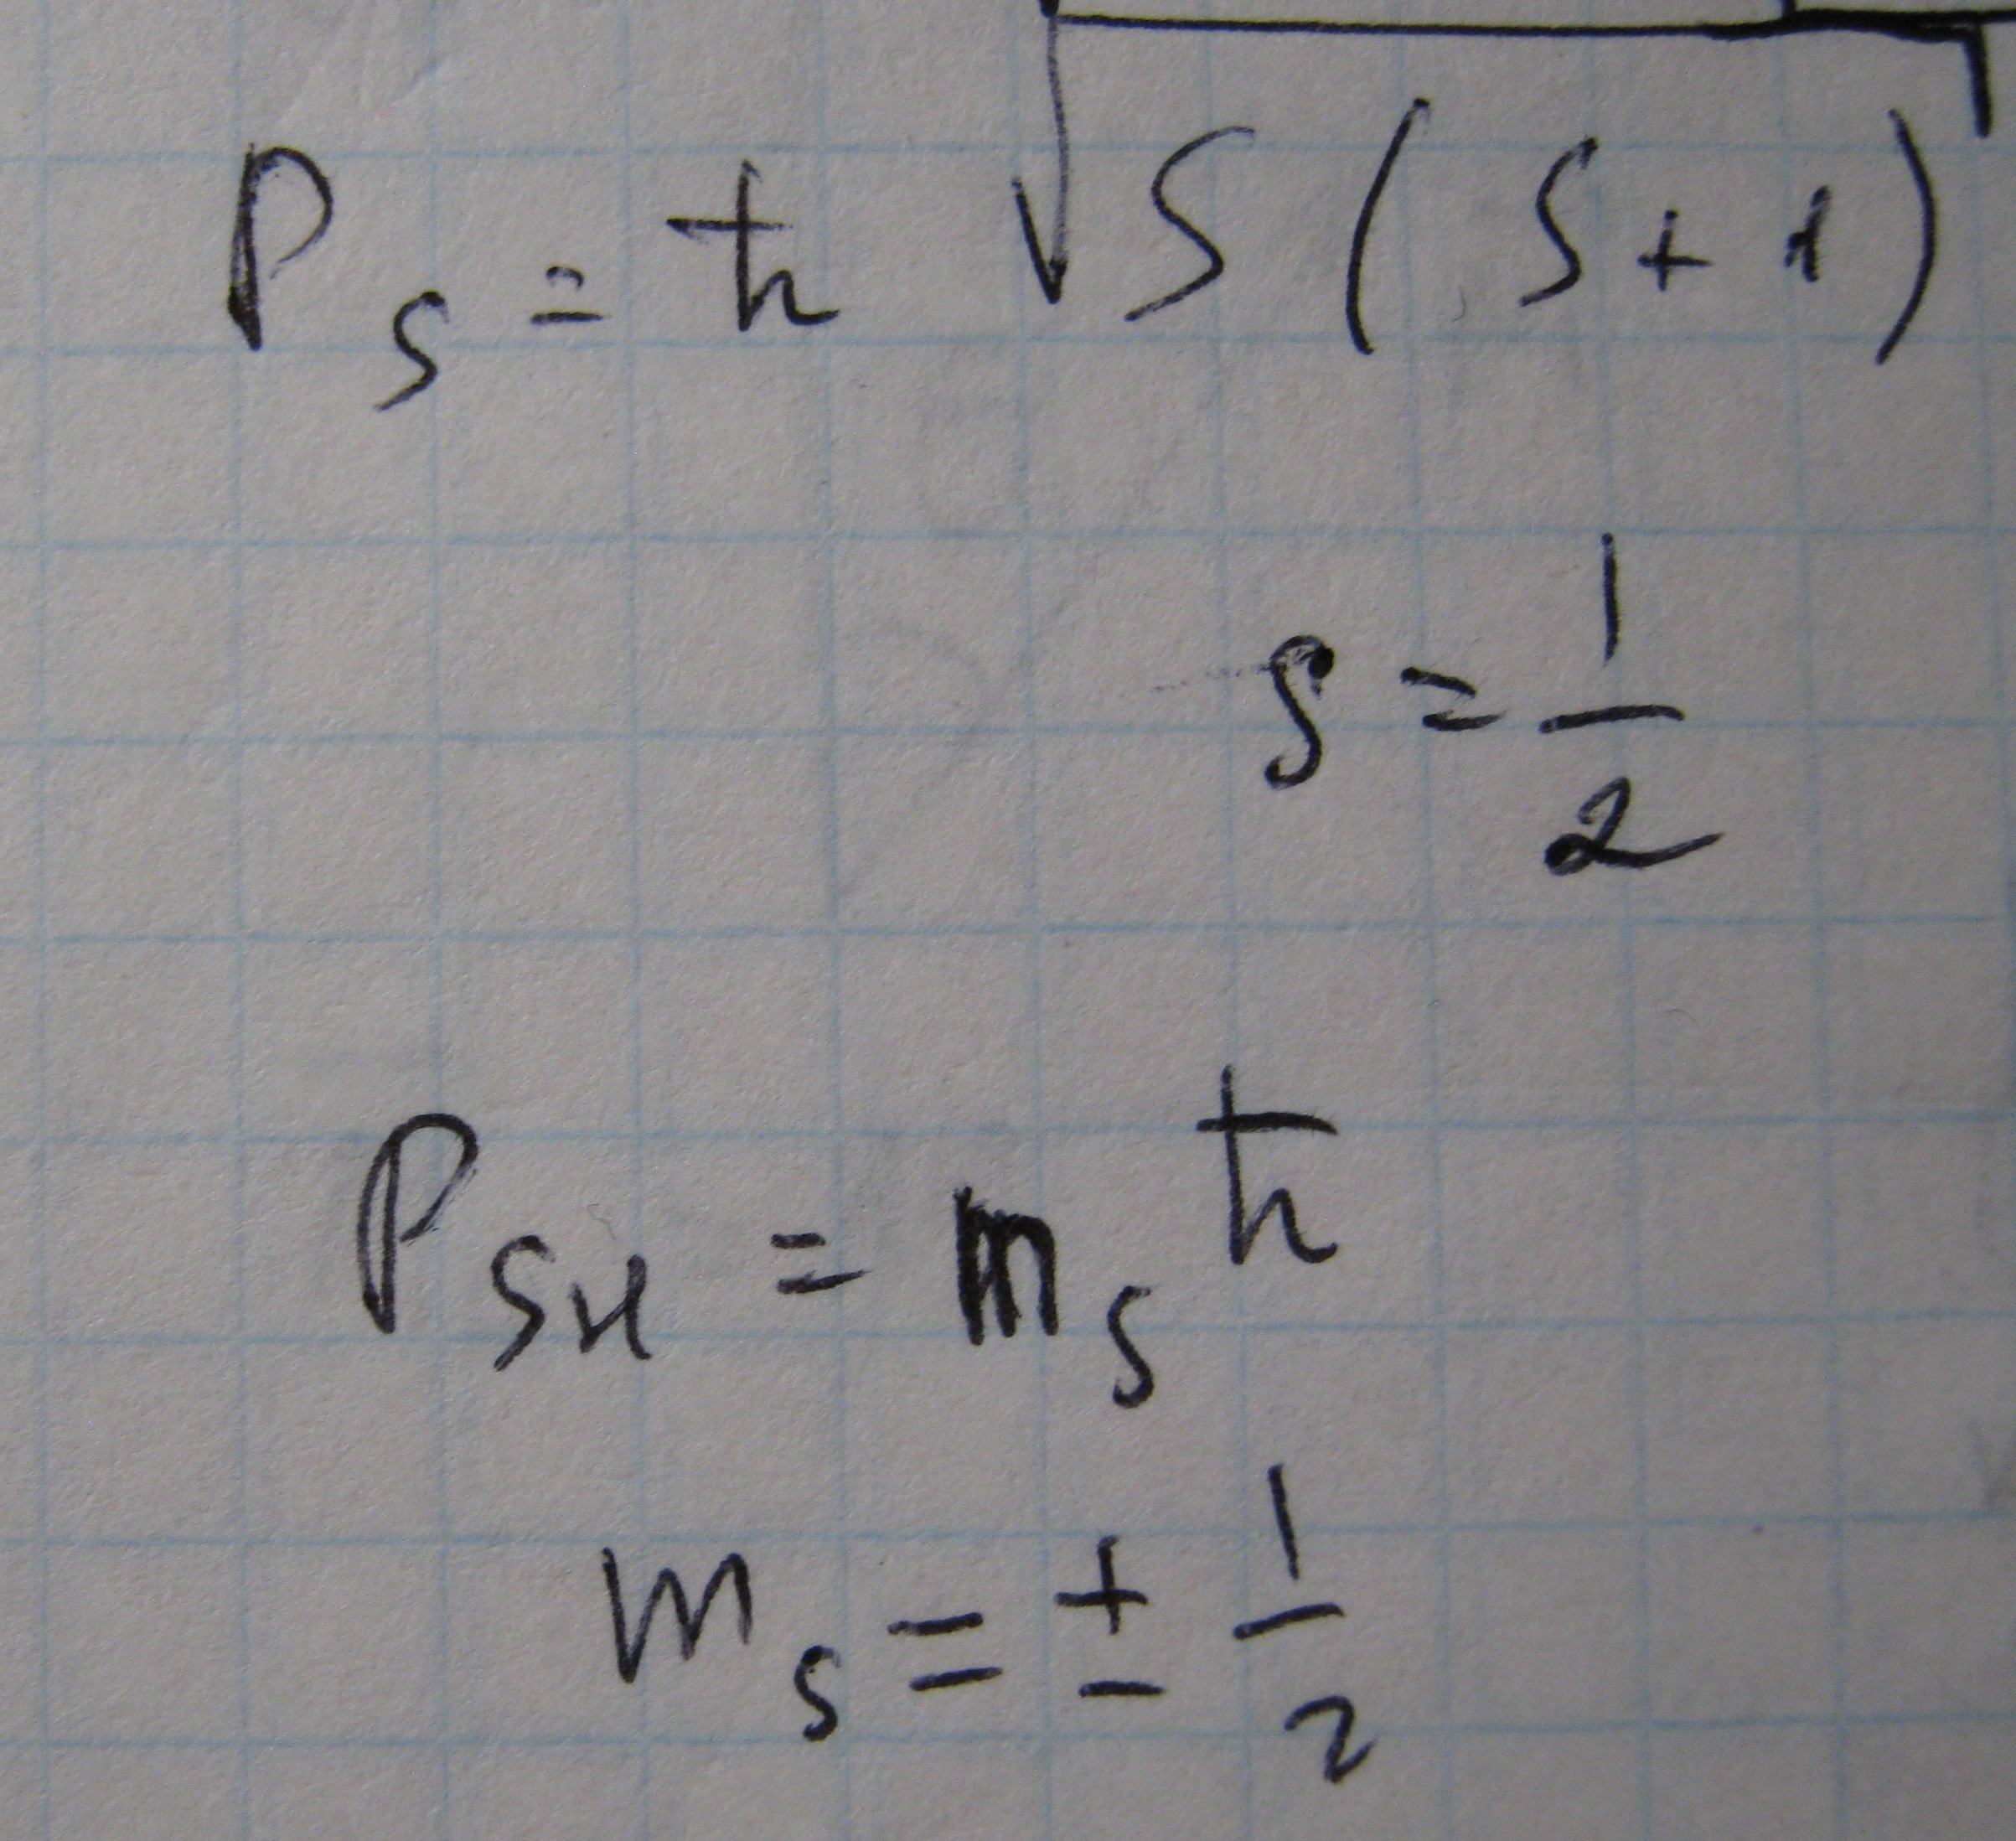 P_s = ħ √(s(s+1))
s = 1/2
P_sн = m_s ħ
m_s = ± 1/2